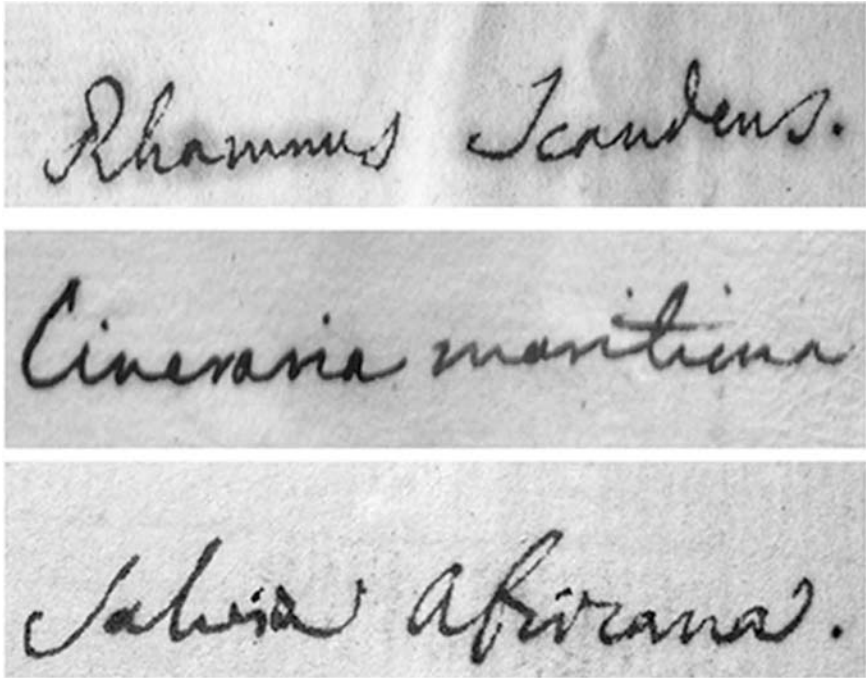 Rhamnus Scandens.
Cineraria maritima
Salvia Africana.